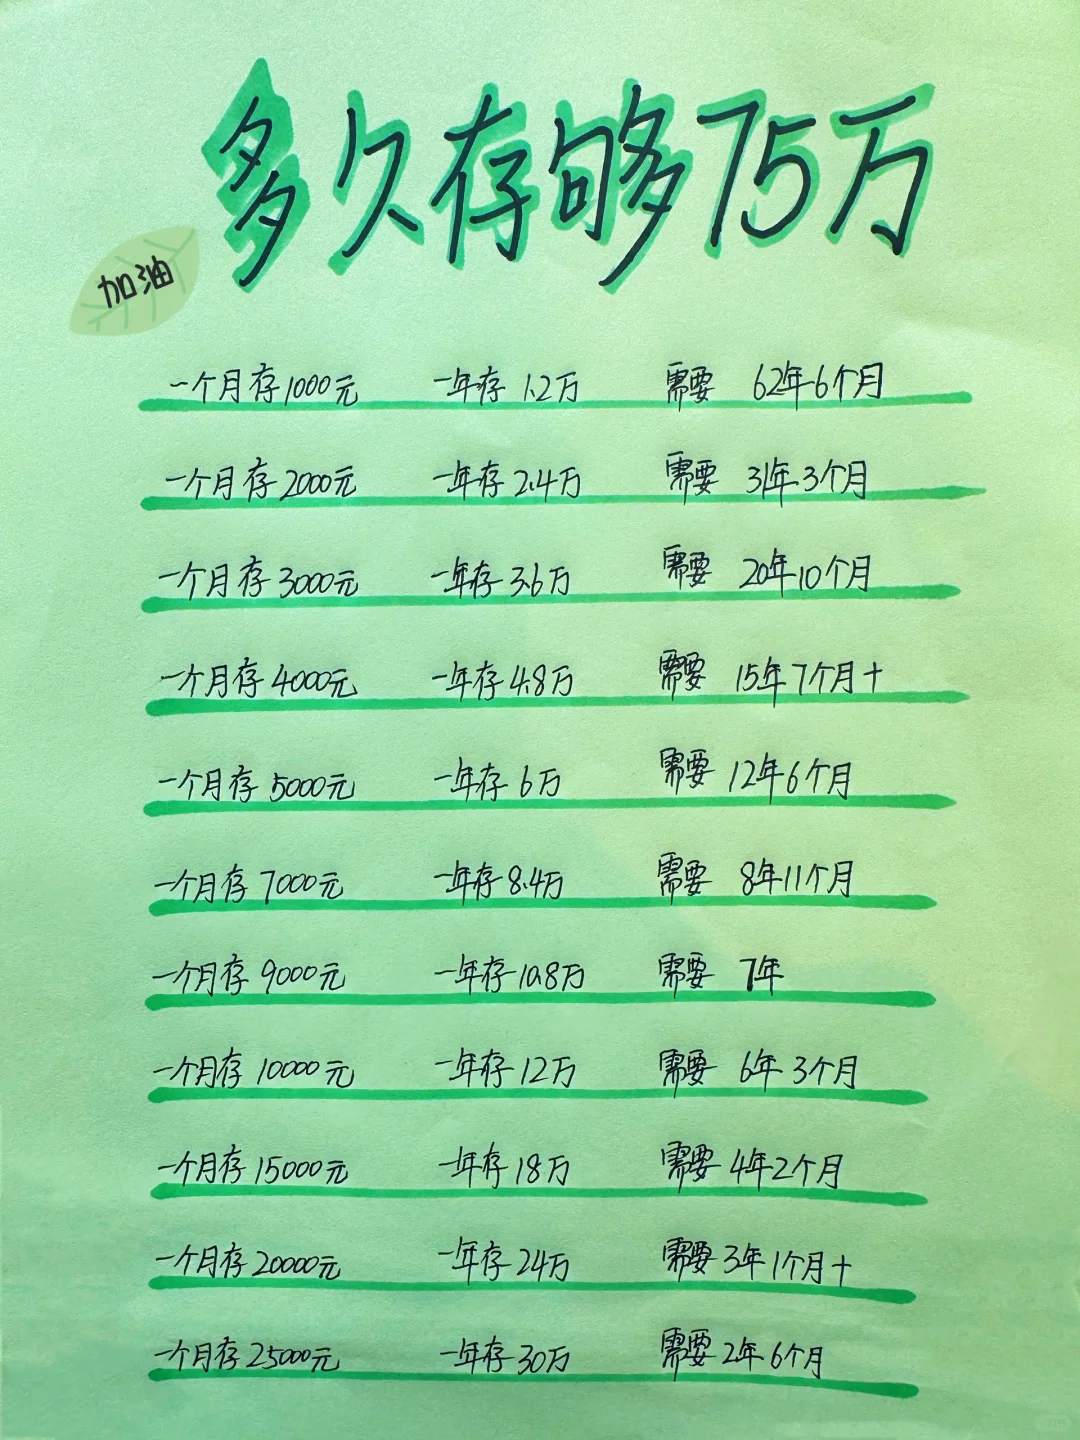 多久存够75万
加油
一个月存1000元 一年存1.2万 需要 62年6个月
一个月存2000元 一年存2.4万 需要 31年3个月
一个月存3000元 一年存3.6万 需要 20年10个月
一个月存4000元 一年存4.8万 需要 15年7个月+
一个月存5000元 一年存6万 需要 12年6个月
一个月存7000元 一年存8.4万 需要 8年11个月
一个月存9000元 一年存10.8万 需要 7年
一个月存10000元 一年存12万 需要 6年3个月
一个月存15000元 一年存18万 需要 4年2个月
一个月存20000元 一年存24万 需要 3年1个月+
一个月存25000元 一年存30万 需要 2年6个月